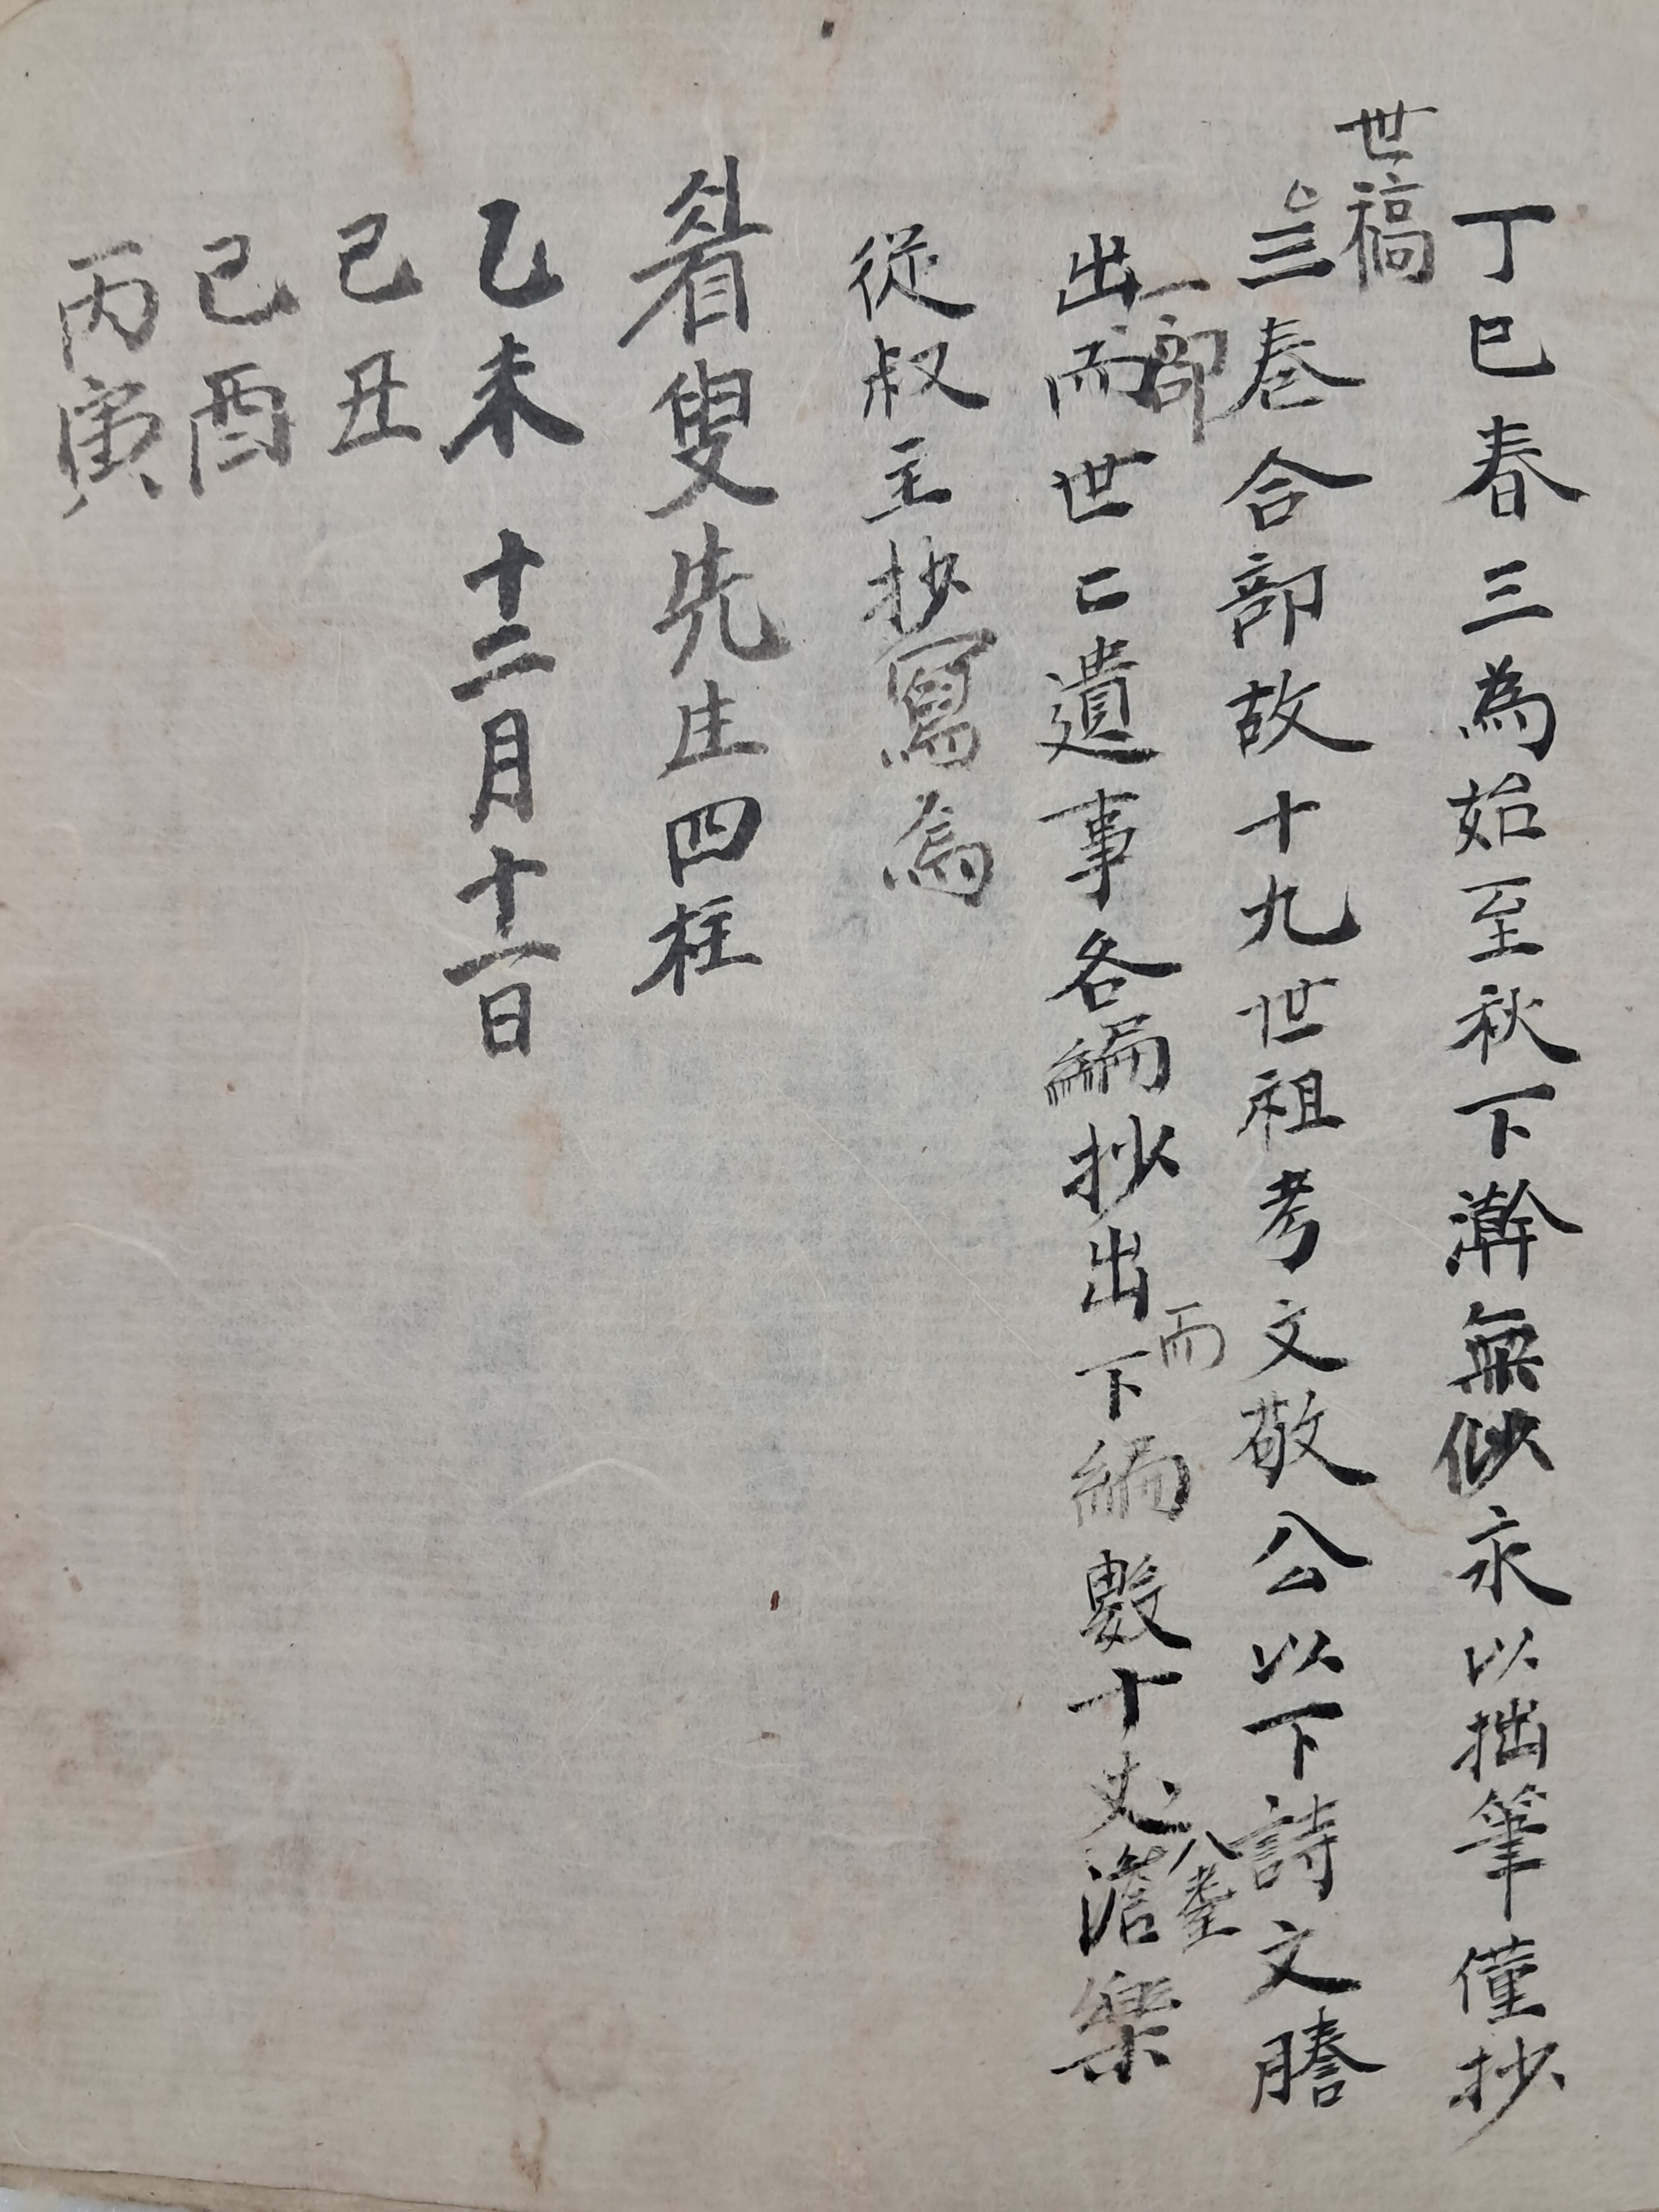 丁巳春三為始至秋下澣無似永以拙筆僅抄
世稿
三卷合部故十九世祖考文敬公以下詩文謄
一部
出而世〻遺事各編抄出下編數十丈澹樂
而
八耋
從叔主抄寫為
叟先生四柱
乙未 十二月十一日
己丑
己酉
丙寅